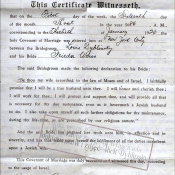 This Certificate Witnesseth,
on the First day of the week, the Sixteenth
day of the month Shvat in the year 5684 A. M.,
corresponding to the of January 1924
Holy Covenant of Marriage was entered into in New York City
between the Bridegroom, Louis
and his Bride,
The said Bridegroom made the following declaration to his Bride:
"Be thou my wife according to the law of Moses and of Israel. I faithfully
promise that I will be a true husband unto thee. I will honor and cherish thee;
I will work for thee; I will protect and support thee, and will provide all that
is necessary for thy due sustenance, even as it beseemeth a Jewish husband
to do. I also take upon myself all such further obligations for thy maintenance,
during thy life-time, as are prescribed by our religious statute."
And the said Bride has plighted her troth unto him, in affection and
sincerity, and has thus taken upon herself the fulfilment of all the duties incumbent
upon a Jewish Wife.
This Covenant of Marriage was duly executed and witnessed this day, according
to the usage of Israel.